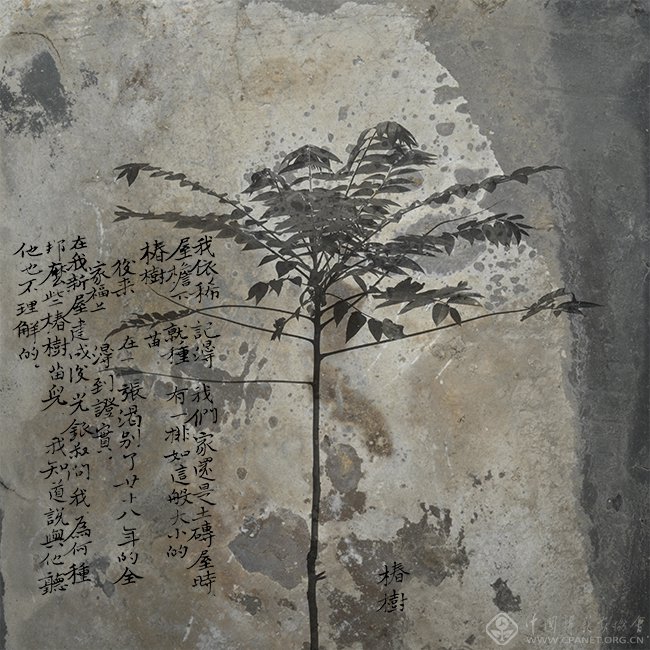 我依稀 記得 我們家還是土磚屋時
屋檐下 就種 有一排如這般大小的
椿樹 苗
後來 在一張濶别了廿十八年的全
家福上 得到證實.
在我新屋建成後,光銀叔问我為何種
那麼些椿樹苗兒 我知道說與他聽
他也不理解的。
椿樹
中國攝影家協會
WWW.CPANET.ORG.CN